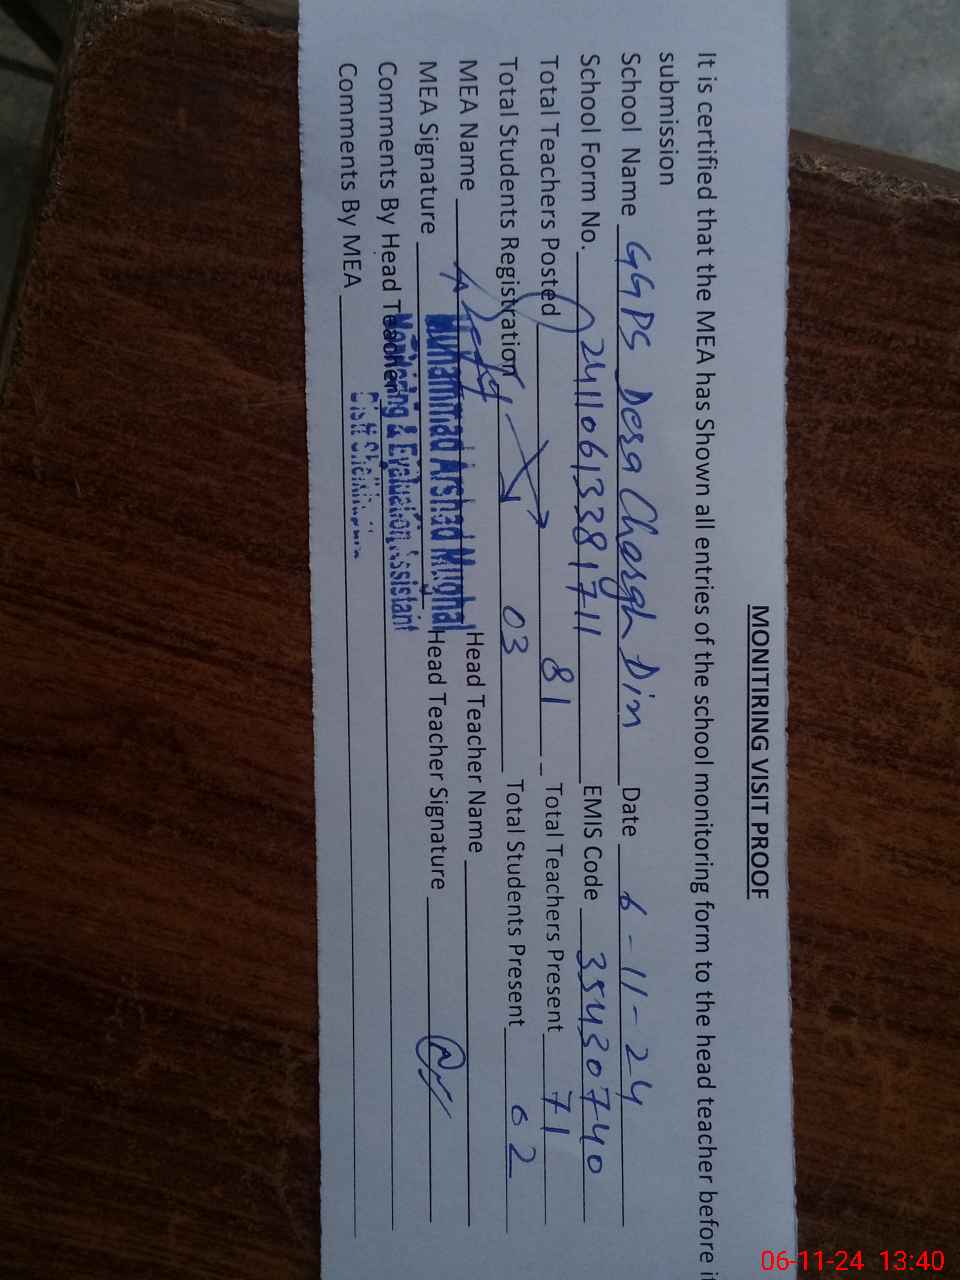 MONITIRING VISIT PROOF
It is certified that the MEA has Shown all entries of the school monitoring form to the head teacher before it
submission
School Name GGPS Desa Chargh Din Date 6-11-24
School Form No. 241106133381711 EMIS Code 35430740
Total Teachers Posted 81 Total Teachers Present 71
Total Students Registration 03 Total Students Present 02
MEA Name Head Teacher Name
Muhammad Arshad Mughal
MEA Signature Head Teacher Signature
Monitoring & Evaluation Assistant
Comments By Head Teacher
Distt Sheikhupura
Comments By MEA
06-11-24 13:40